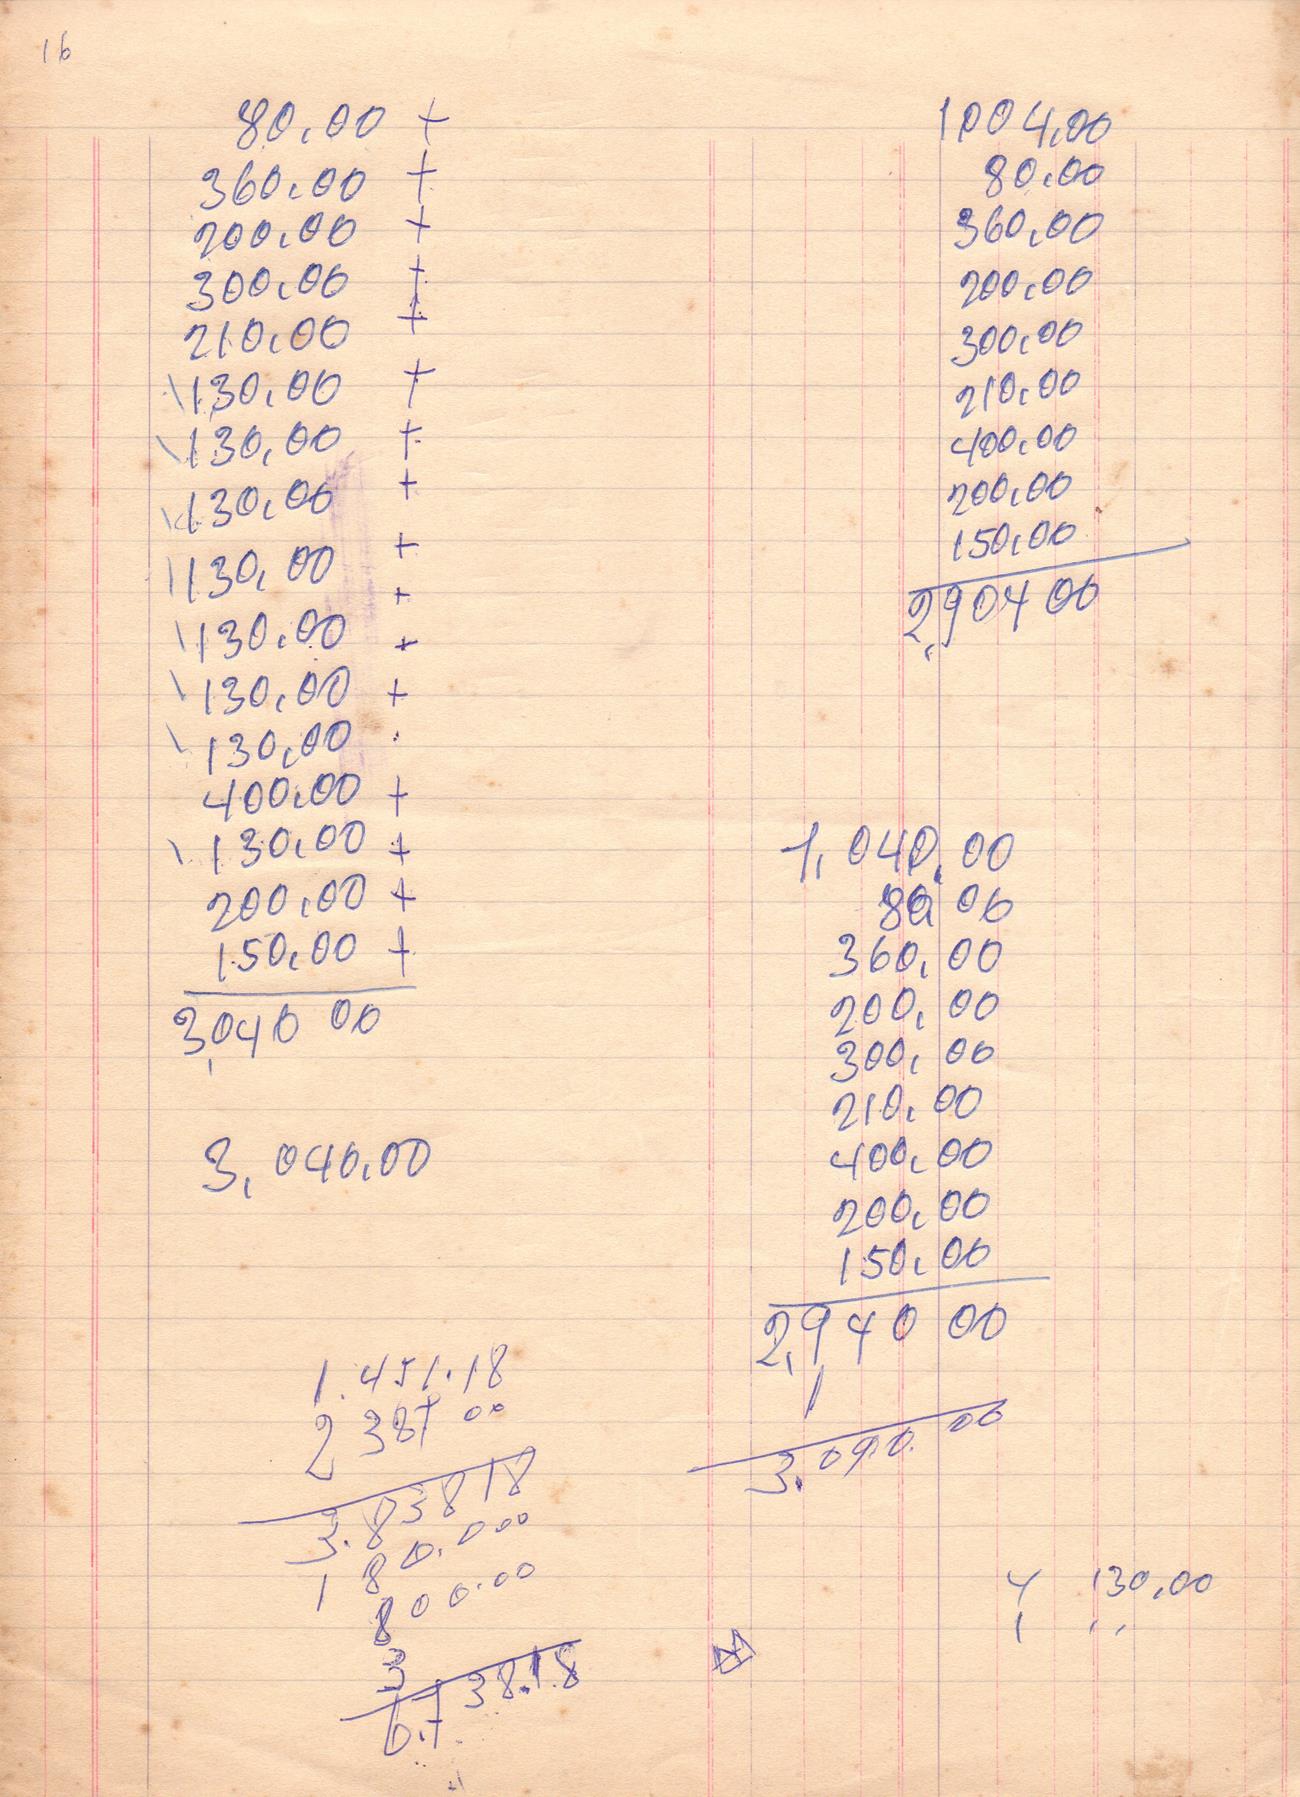 16
80,00 +
360,00 +
200,00 +
300,00 +
210,00 +
130,00 +
130,00 +
130,00 +
130,00 +
130,00 +
130,00 +
130,00
400,00 +
130,00 +
200,00 +
150,00 +
3,040 00
3,040,00
1.451.18
2 387 00
3.83818
1 80.000
800.00
3
6.7 38.18
1004,00
80,00
360,00
200,00
300,00
210,00
400,00
200,00
150,00
2,904 00
1,040,00
80 00
360,00
200,00
300,00
210,00
400,00
200,00
150,00
2,940 00
1
3.090.00
4 130,00
1 ,,